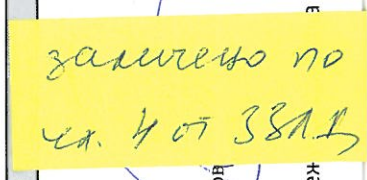 заличено по
чл. 4 от ЗЗЛД